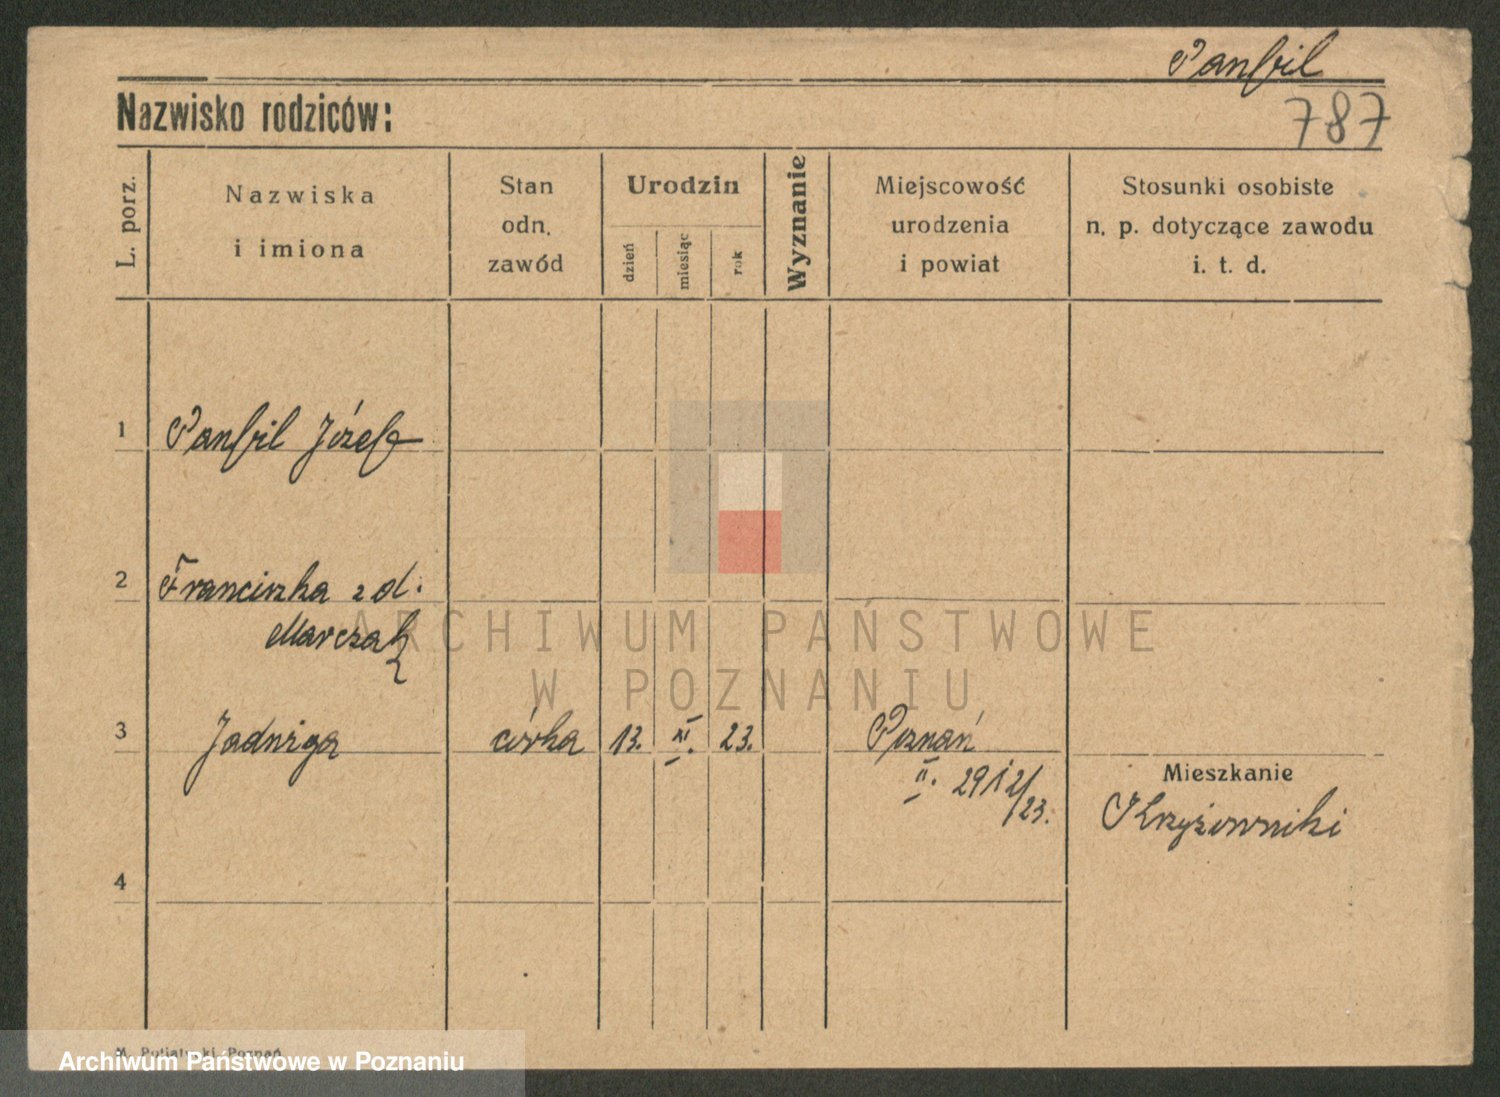 Panfil
Nazwisko rodziców:
787
L. porz.
Nazwiska
i imiona
Stan
odn.
zawód
Urodzin
dzień
miesiąc
rok
Wyznanie
Miejscowość
urodzenia
i powiat
Stosunki osobiste
n. p. dotyczące zawodu
i. t. d.
1 Panfil Józef
2 Franciszka z d.
Marczak
ARCHIWUM PAŃSTWOWE
W POZNANIU
3 Jadwiga córka 13. XI. 23. Poznań
II. 2912/23.
Mieszkanie
Krzyżowniki
4
Poznań
Archiwum Państwowe w Poznaniu